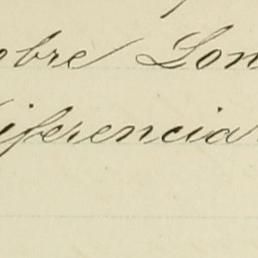 obre Lon
iferencia